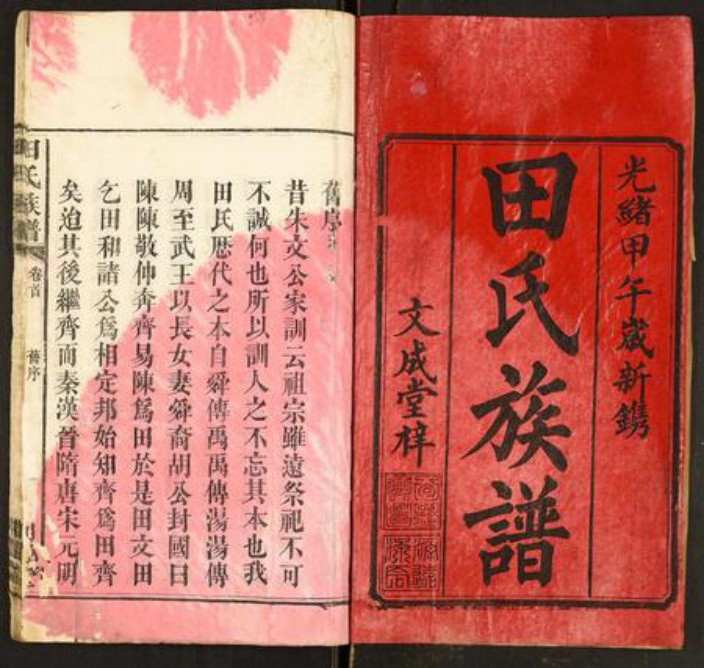 光緒甲午歲新鐫
田氏族譜
文成堂梓
舊序
昔朱文公家訓云祖宗雖遠祭祀不可
不誠何也所以訓人之不忘其本也我
田氏歴代之本自舜傳禹禹傳湯湯傳
周至武王以長女妻舜裔胡公封國曰
陳陳敬仲奔齊易陳爲田於是田文田
乞田和諸公爲相定邦始知齊爲田齊
矣迨其後繼齊而秦漢晉隋唐宋元明
田氏族譜
卷首
舊序